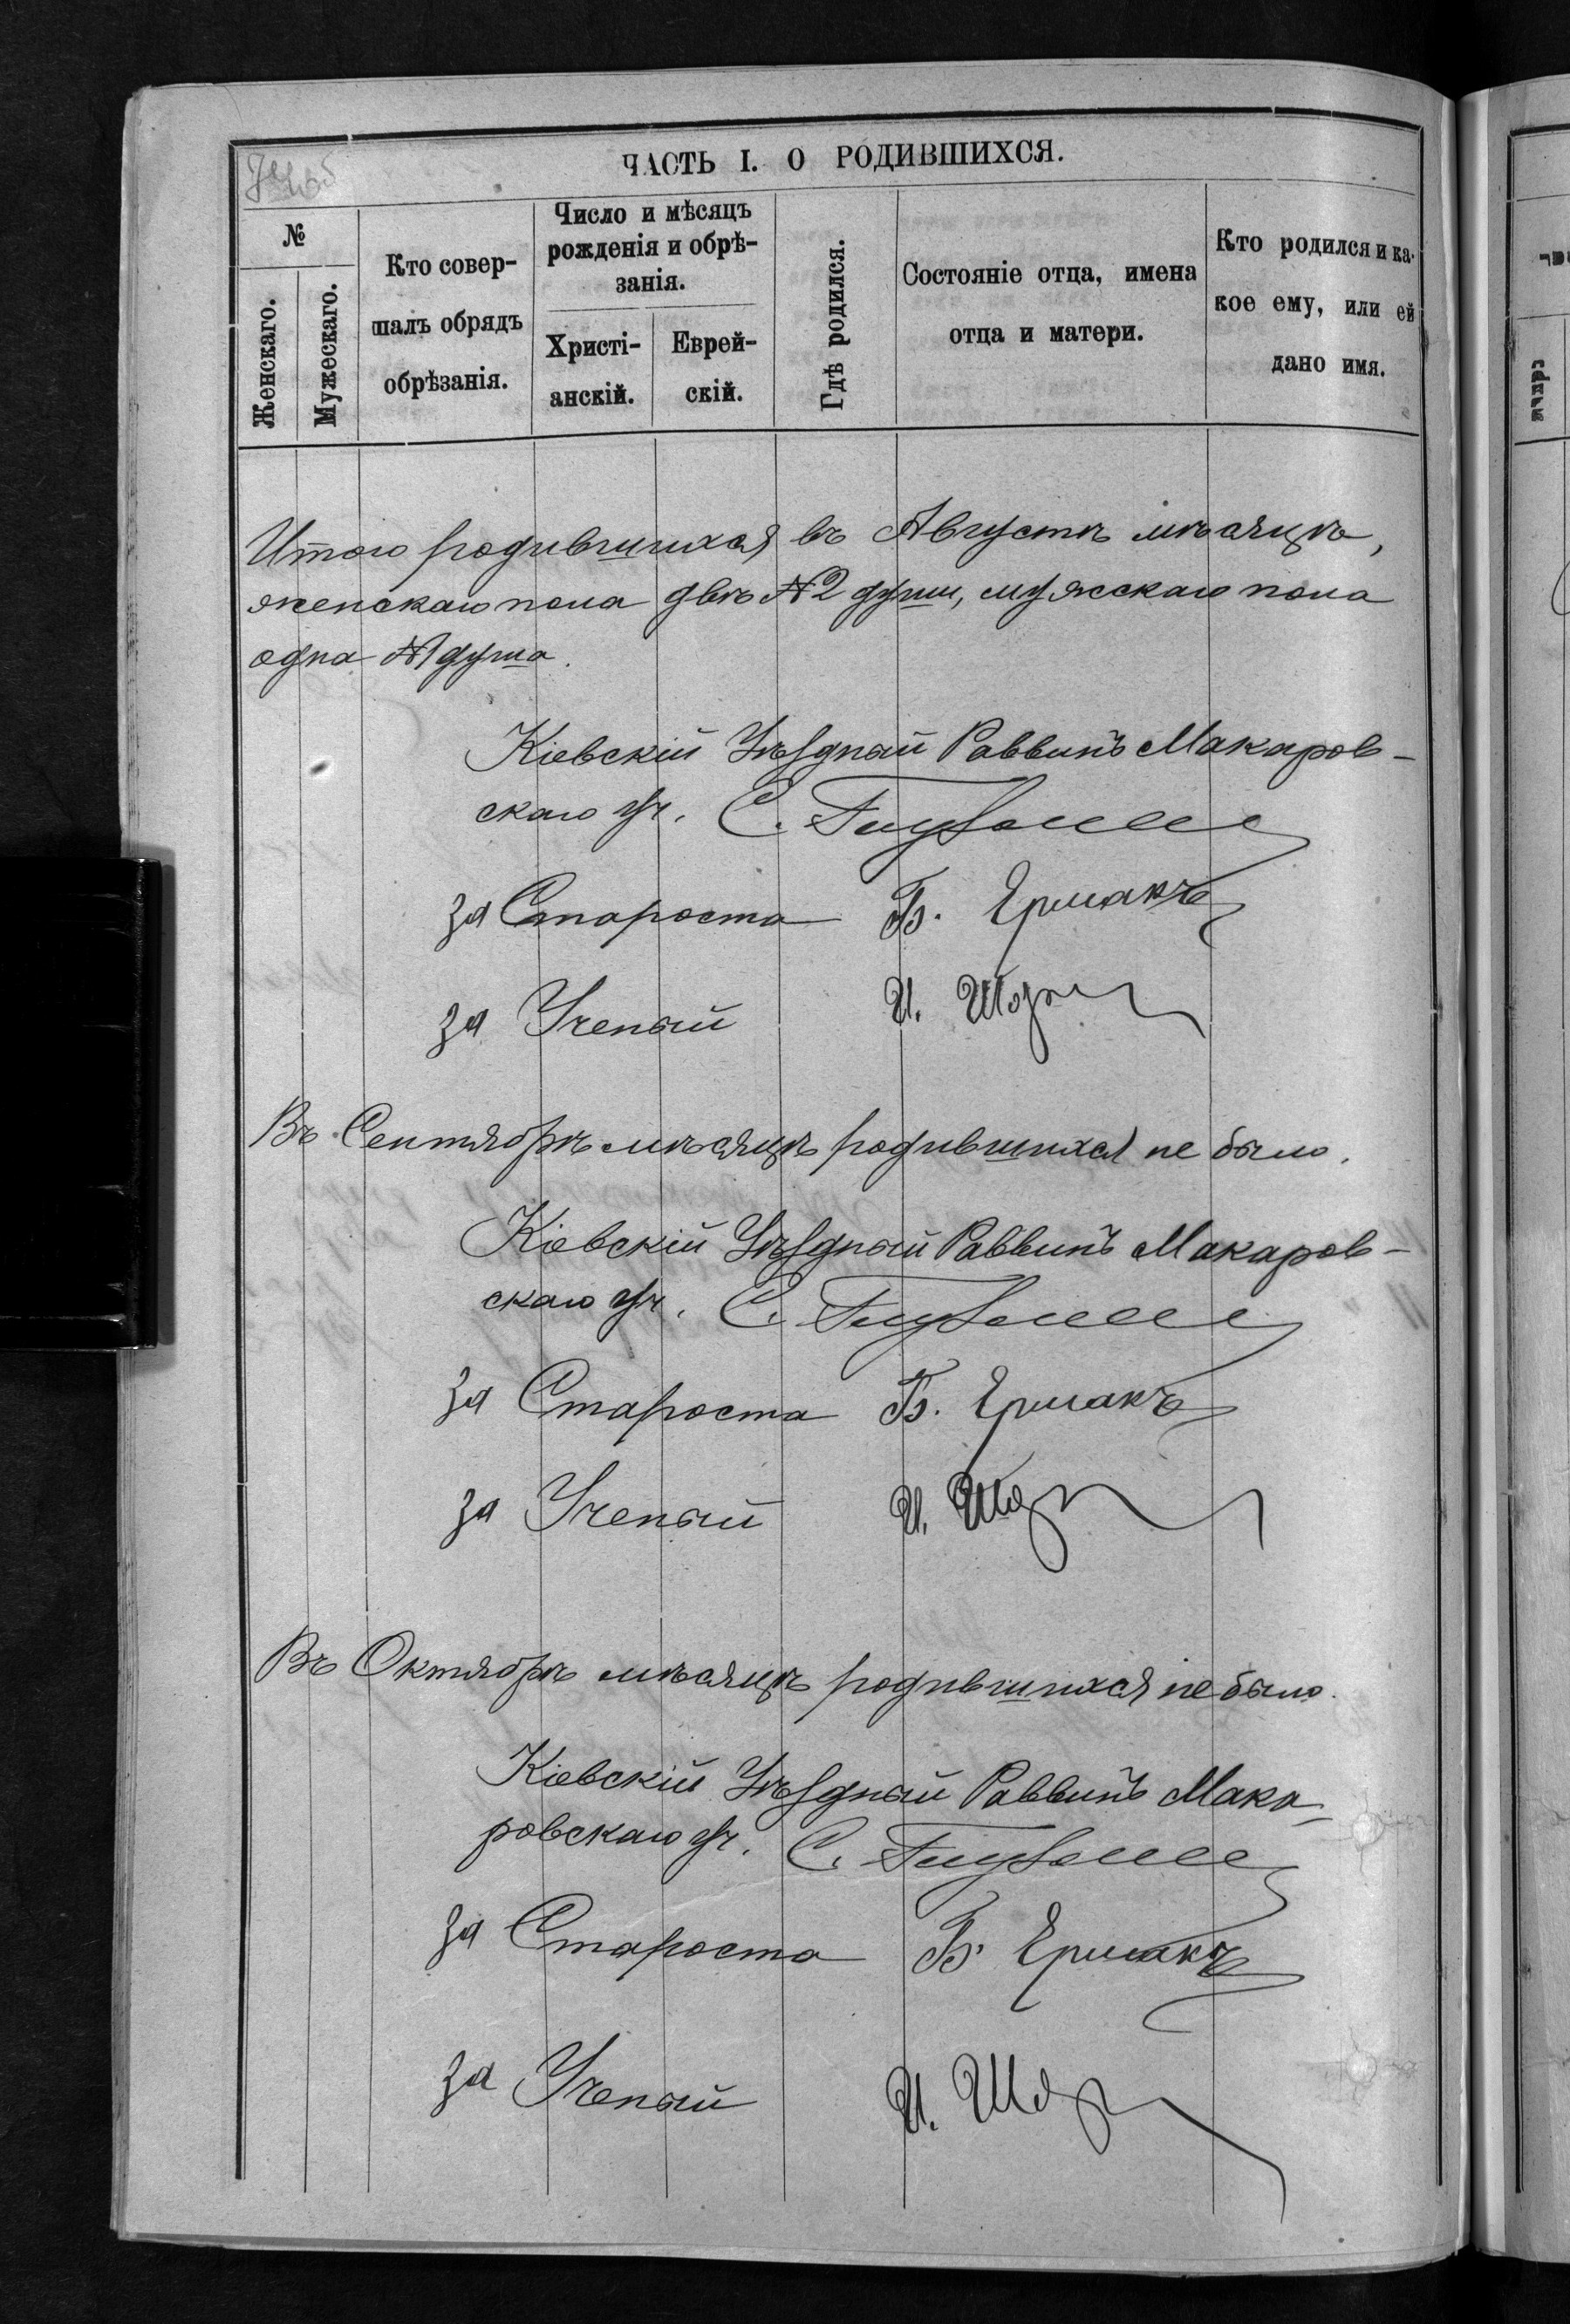 ЧАСТЬ I. О РОДИВШИХСЯ.
№
Женскаго.
Мужескаго.
Кто совер-
шалъ обрядъ
обрѣзанія.
Число и мѣсяцъ
рожденія и обрѣ-
занія.
Христі-
анскій.
Еврей-
скій.
Гдѣ родился.
Состояніе отца, имена
отца и матери.
Кто родился и ка-
кое ему, или ей
дано имя.
Итого родившихся въ Августѣ мѣсяцѣ,
женскаго пола двѣ №2 души, мужскаго пола
одна №1 душа.
Кіевскій Уѣздный Раввинъ Макаров-
скаго уч. С.
за Староста Б. Ермакъ
за Ученый И.
Въ Сентябрѣ мѣсяцѣ родившихся не было.
Кіевскій Уѣздный Раввинъ Макаров-
скаго уч. С.
за Староста Б. Ермакъ
за Ученый И.
Въ Октябрѣ мѣсяцѣ родившихся не было.
Кіевскій Уѣздный Раввинъ Мака-
ровскаго уч. С.
за Староста Б. Ермакъ
за Ученый И.